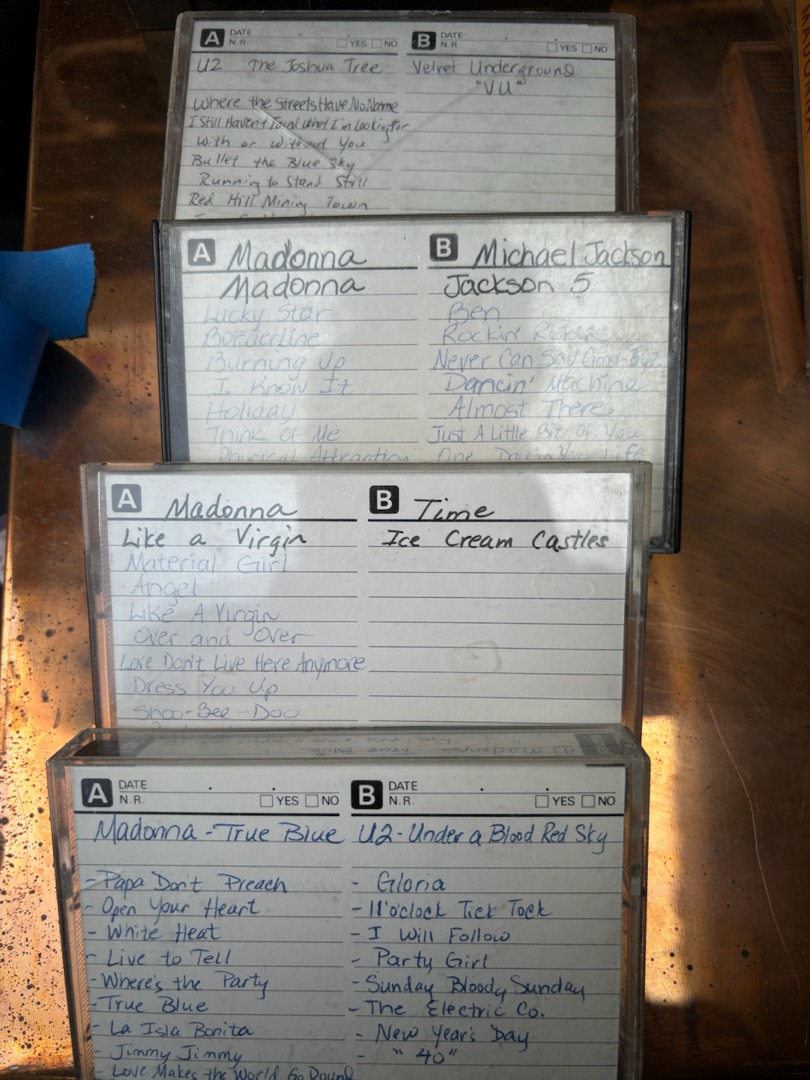 A DATE N.R. YES NO B DATE N.R YES NO
U2 The Joshua Tree
Where the Streets Have No Name
I Still Haven't Found What I'm Looking for
With or Without You
Bullet the Blue Sky
Running to Stand Still
Red Hill Mining Town
Velvet Underground
"VU"
A Madonna
Madonna
Lucky Star
Borderline
Burning Up
I Know It
Holiday
Think of Me
Physical Attraction
B Michael Jackson
Jackson 5
Ben
Rockin'
Never Can Say Good Bye
Dancin' Machine
Almost There
Just A Little Bit of You
One Day in Your Life
A Madonna
Like a Virgin
Material Girl
Angel
Like A Virgin
Over and Over
Love Don't Live Here Anymore
Dress You Up
Shoo-Bee-Doo
B Time
Ice Cream Castles
A DATE N.R. YES NO B DATE N.R. YES NO
Madonna - True Blue
- Papa Don't Preach
- Open Your Heart
- White Heat
- Live to Tell
- Where's the Party
- True Blue
- La Isla Bonita
- Jimmy Jimmy
- Love Makes the World Go Round
U2 - Under a Blood Red Sky
- Gloria
- 11 o'clock Tick Tock
- I Will Follow
- Party Girl
- Sunday Bloody Sunday
- The Electric Co.
- New Year's Day
- "40"